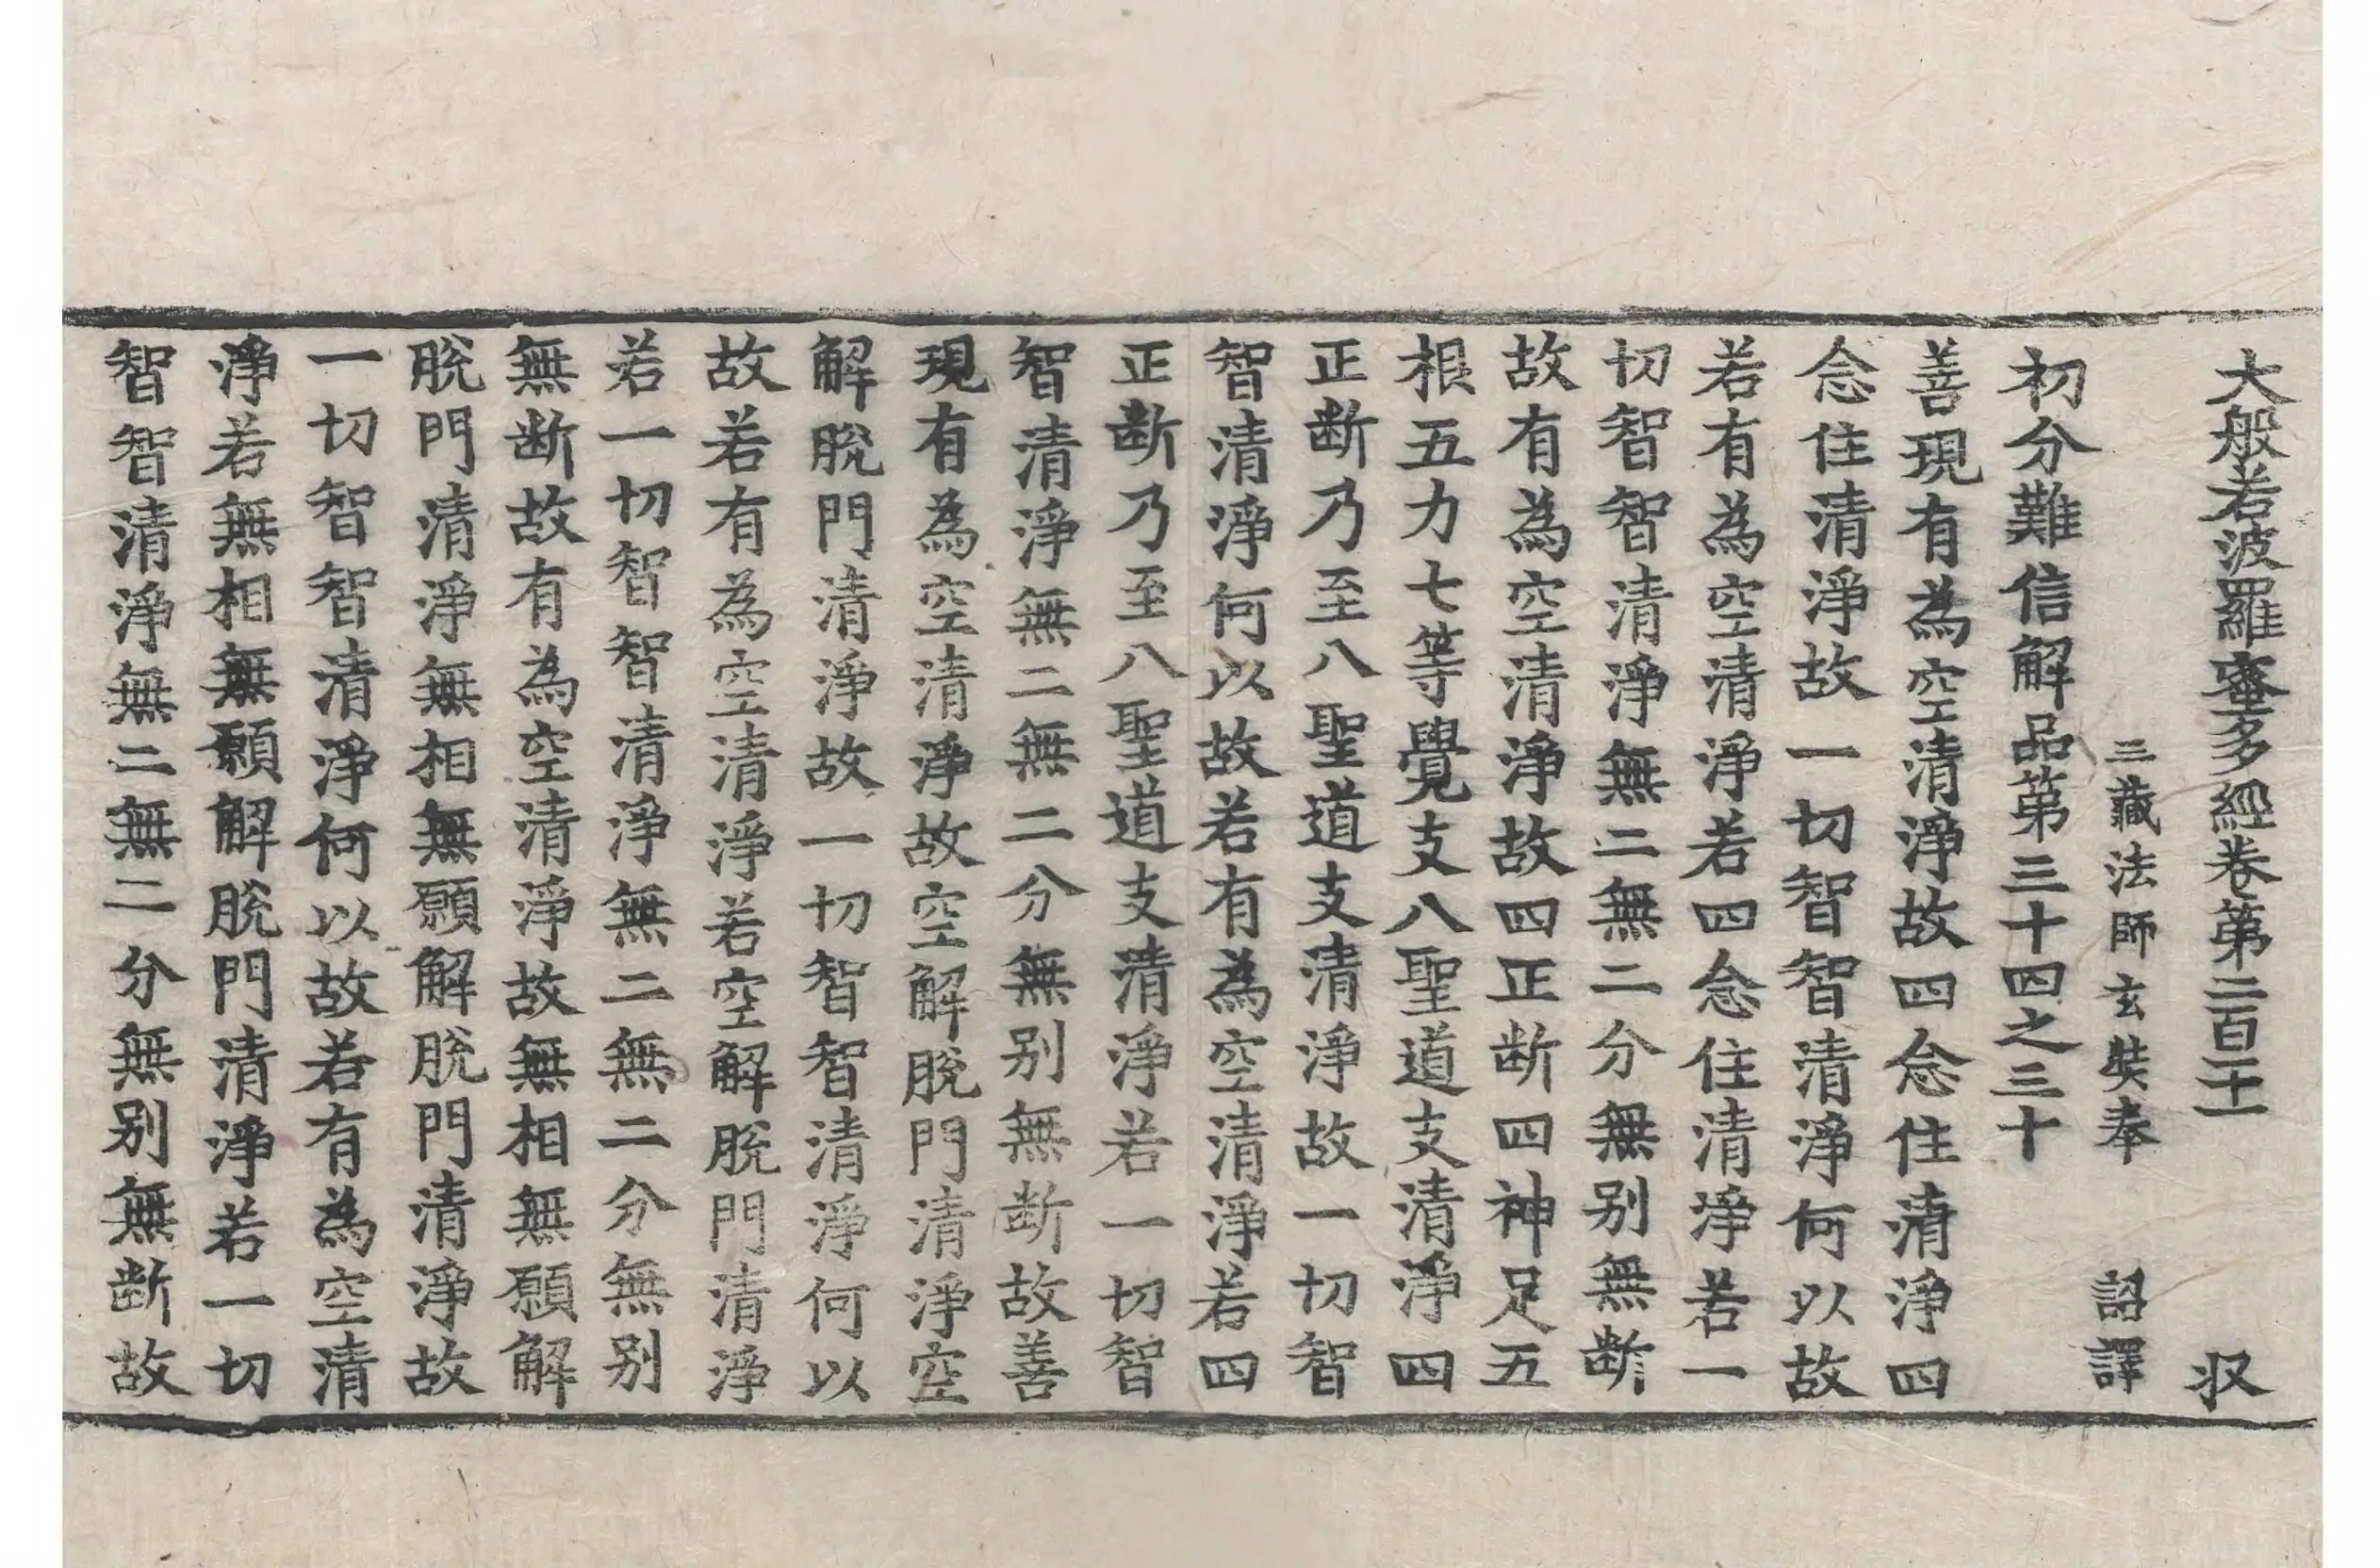 大般若波羅蜜多經卷第二百一十一　収
三藏法師玄奘奉　詔譯
初分難信解品第三十四之三十
善現有為空清淨故四念住清淨四
念住清淨故一切智智清淨何以故
若有為空清淨若四念住清淨若一
切智智清淨無二無二分無別無断
故有為空清淨故四正断四神足五
根五力七等覺支八聖道支清淨四
正断乃至八聖道支清淨故一切智
智清淨何以故若有為空清淨若四
正断乃至八聖道支清淨若一切智
智清淨無二無二分無別無断故善
現有為空清淨故空解脫門清淨空
解脫門清淨故一切智智清淨何以
故若有為空清淨若空解脫門清淨
若一切智智清淨無二無二分無別
無断故有為空清淨故無相無願解
脫門清淨無相無願解脫門清淨故
一切智智清淨何以故若有為空清
淨若無相無願解脫門清淨若一切
智智清淨無二無二分無別無断故